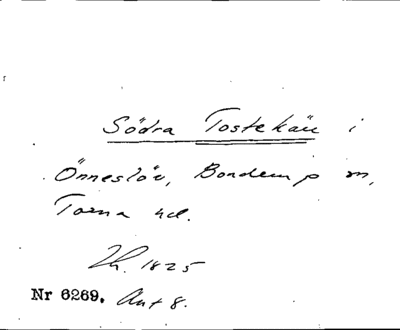 Södra Tostekäu i
Önneslöv, Bonderup sn,
Torna hd.
Lh. 1825
Nr 6269. Ant 8.